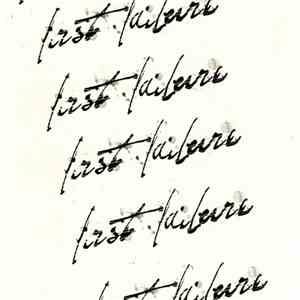 first failure
first failure
first failure
first failure
first failure